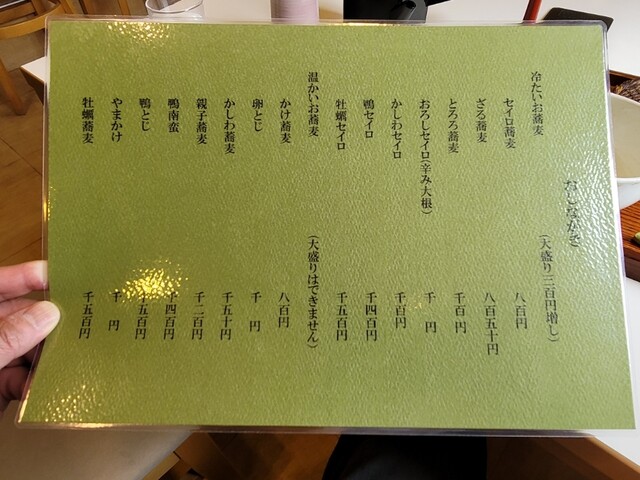 おしながき
冷たいお蕎麦　（大盛り三百円増し）
セイロ蕎麦　八百円
ざる蕎麦　八百五十円
とろろ蕎麦　千百円
おろしセイロ（辛み大根）　千円
かしわセイロ　千百円
鴨セイロ　千四百円
牡蠣セイロ　千五百円
温かいお蕎麦　（大盛りはできません）
かけ蕎麦　八百円
卵とじ　千円
かしわ蕎麦　千五十円
親子蕎麦　千二百円
鴨南蛮　千四百円
鴨とじ　千五百円
やまかけ　千円
牡蠣蕎麦　千五百円